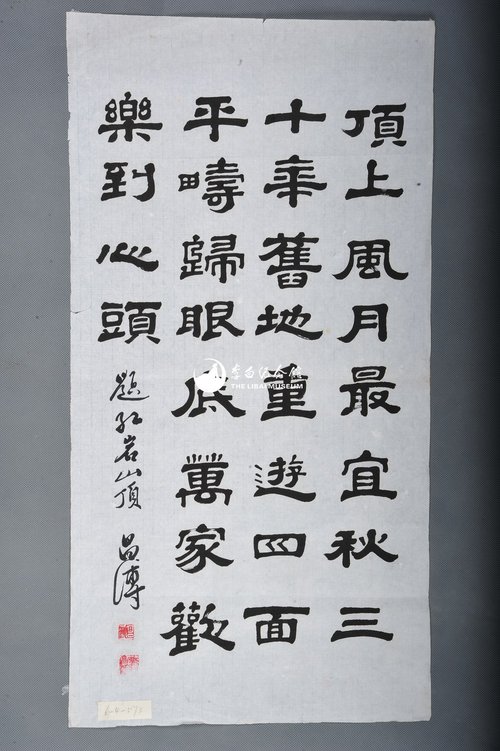 頂上風月最宜秋三
十年舊地重遊四面
平疇歸眼底萬家歡
樂到心頭
题红岩山顶 昌溥
李白纪念馆
THE LIBAI MUSEUM